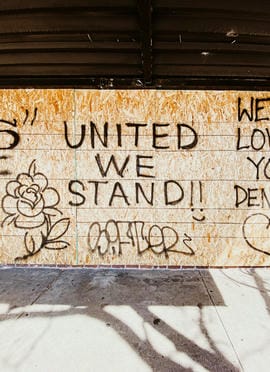 S"
E
UNITED
WE
STAND!!
WE
LOV
YO
DEN